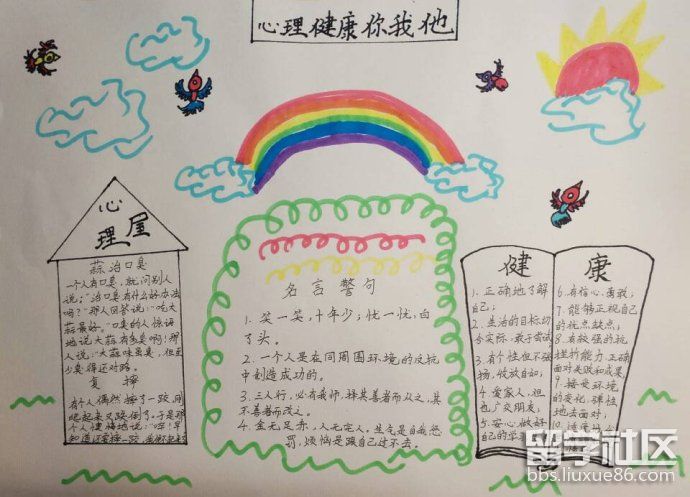 心理健康你我他
心
理屋
蒜治口臭
一个人有口臭，就问别人
说："治口臭有什么好办法
吗？"那人回答说："吃大
蒜最好。"口臭的人惊讶
地说大蒜有多臭啊！那
人说："大蒜味虽臭，但至
少臭得还对路。
复摔
有个人偶然摔了一跤，刚
爬起来又跌倒了。于是那
个人懊悔地说："哼！早
知道还要摔一跤，
名言警句
1. 笑一笑，十年少；忧一忧，白
了头。
2. 一个人是在同周围环境的反抗
中创造成功的。
3. 三人行，必有我师，择其善者而从之，其
不善者而改之。
4. 金无足赤，人无完人。生气是自我惩
罚，烦恼是跟自己过不去。
健
1. 正确地了解
自己；
2. 生活的目标切
合实际，敢于尝试
3. 有个性但不张
扬，收放自如；
4. 爱家人，但
也广交朋友；
5. 安心做好
自己的学
康
6. 有信心、勇敢；
7. 能够正视自己
的优点缺点；
8. 有较强的抗
挫折能力，正确
面对失败和成果
9. 接受环境
的变化，弹性
地去面对；
10.
留学社区
bbs.liuxue86.com